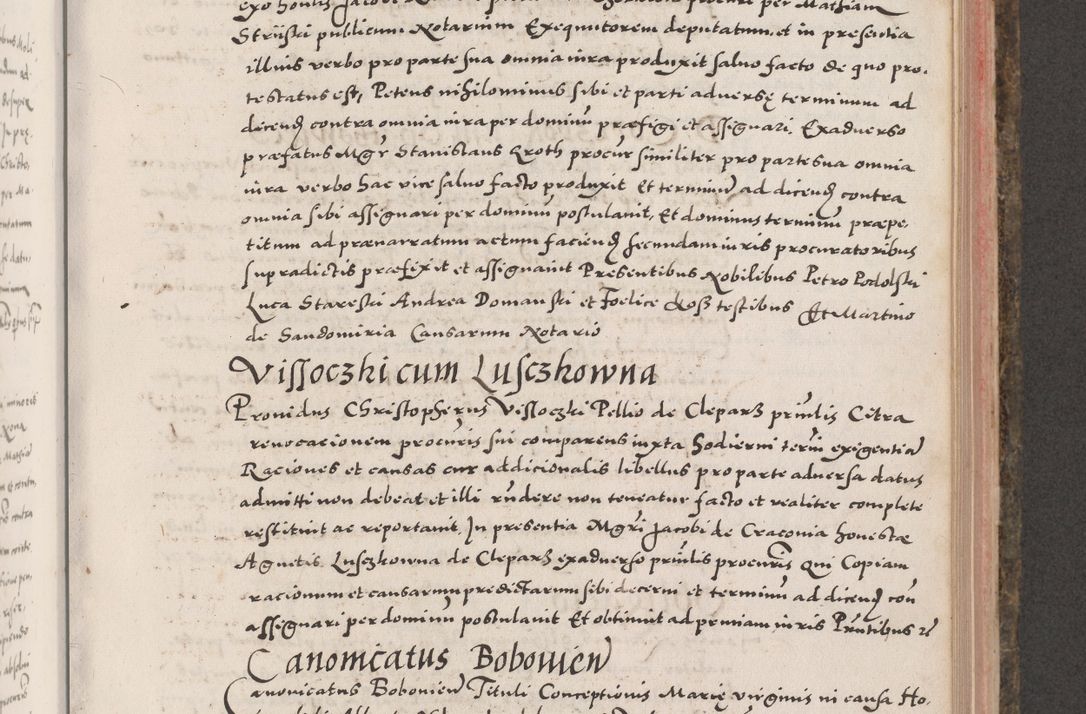 Striiski publicum Notarium Exequutorem deputatum, et in presentia
illuis verbo pro parte sua omnia iura produxit saluo facto de quo pro,
testatus est, Petens nihilominus sibi et parti aduersę terminum ad
dicend contra omnia iura per dominū præfigi et assignari, Exaduerso
præfatus Mgr Stanislaus Kroth procur similiter pro parte sua omnia
iura verbo hac vice saluo facto produxit Et terminū ad dicend contra
omnia sibi assignari per dominū postulauit, Et dominus terminū præpe,
titum ad prænarratum actum faciend secundam iuris procuratoribus
supradictis præfixit et assignauit Presentibus Nobilibus Petro Podolski
Luca Stareski Andrea Domanski et Foelice testibus Et Martino
de Sandomiria Causarum Notario
Vissoczki cum Lusczkowna
Prouidus Christopherus Vissoczki Pellio de Cleparz prinlis Citra
reuocacionem procuris sui comparens iuxta hodierni termi exigentia
Raciones et causas cur addicionalis libellus pro parte aduersa datus
admitti non debeat et illi rūdere non teneatur facto et realiter complete
restituit ac reportauit, In presentia Mgri Jacobi de Cracouia honestæ
Agnetis Lusczkowna de Cleparz exaduerso prinlis procuris Qui Copiam
racionum et causarum predictarum sibi decerni et terminū ad dicend con
assignari per dominū postulauit Et obtinuit ad primam iuris Prntibus
Canonicatus Bobouien
Canonicatus Bobouien Tituli Conceptionis Marię virginis in causa Ho,